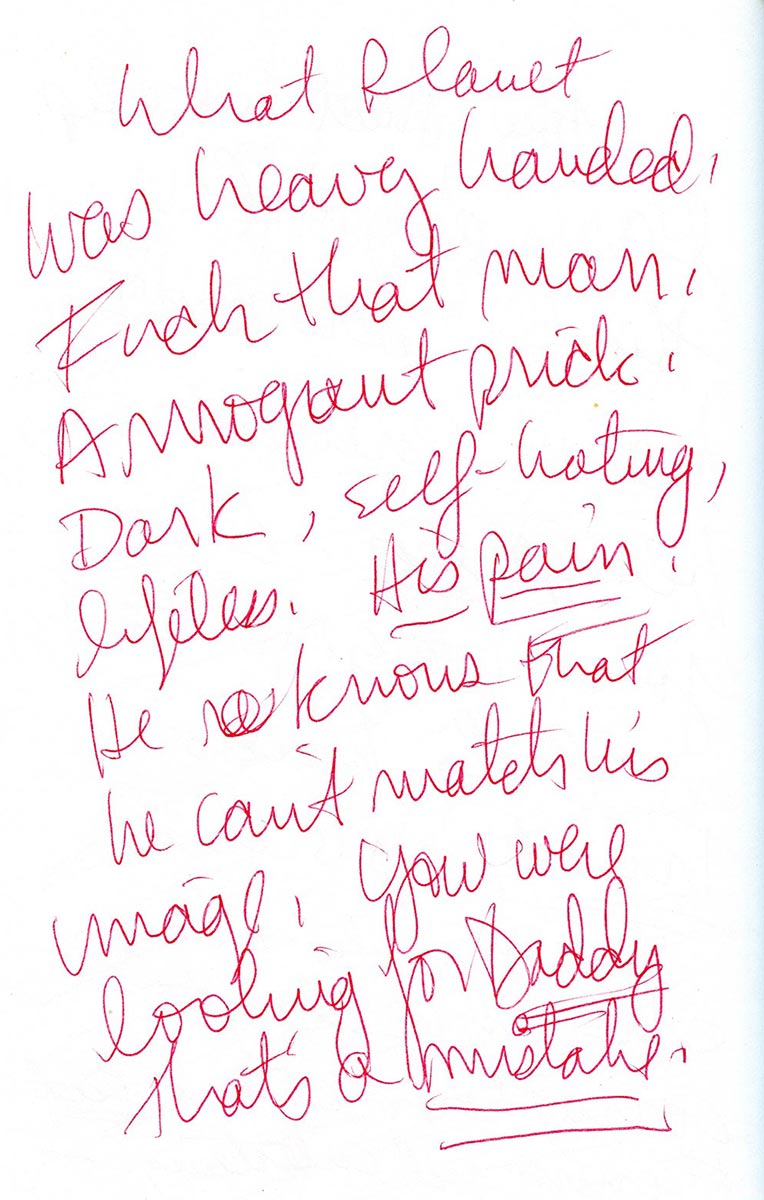 What Planet
was heavy handed.
Fuck that man.
Arrogant prick.
Dark, self-hating,
lifeless. His pain.
He knows that
he can't match his
image. You were
looking for Daddy
that's a mistake.